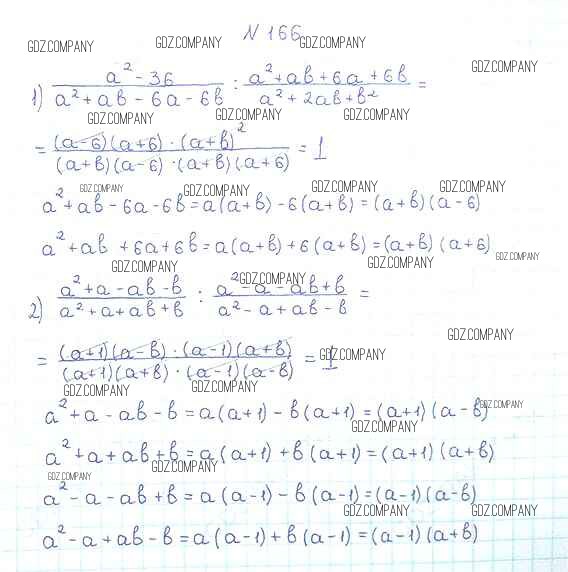 N 166
GDZ.COMPANY GDZ.COMPANY GDZ.COMPANY
GDZ.COMPANY
1) (a² - 36)/(a² + ab - 6a - 6b) : (a² + ab + 6a + 6b)/(a² + 2ab + b²) =
GDZ.COMPANY GDZ.COMPANY GDZ.COMPANY
= ((a-6)(a+6) · (a+b)²)/((a+b)(a-6) · (a+b)(a+6)) = 1
GDZ.COMPANY GDZ.COMPANY GDZ.COMPANY GDZ.COMPANY
a² + ab - 6a - 6b = a(a+b) - 6(a+b) = (a+b)(a-6)
a² + ab + 6a + 6b = a(a+b) + 6(a+b) = (a+b)(a+6)
GDZ.COMPANY GDZ.COMPANY GDZ.COMPANY
GDZ.COMPANY
2) (a² + a - ab - b)/(a² + a + ab + b) : (a² - a - ab + b)/(a² - a + ab - b) =
GDZ.COMPANY
= ((a+1)(a-b) · (a-1)(a+b))/((a+1)(a+b) · (a-1)(a-b)) = 1
GDZ.COMPANY
GDZ.COMPANY GDZ.COMPANY
a² + a - ab - b = a(a+1) - b(a+1) = (a+1)(a-b)
GDZ.COMPANY
GDZ.COMPANY
a² + a + ab + b = a(a+1) + b(a+1) = (a+1)(a+b)
GDZ.COMPANY
GDZ.COMPANY
a² - a - ab + b = a(a-1) - b(a-1) = (a-1)(a-b)
GDZ.COMPANY GDZ.COMPANY
a² - a + ab - b = a(a-1) + b(a-1) = (a-1)(a+b)